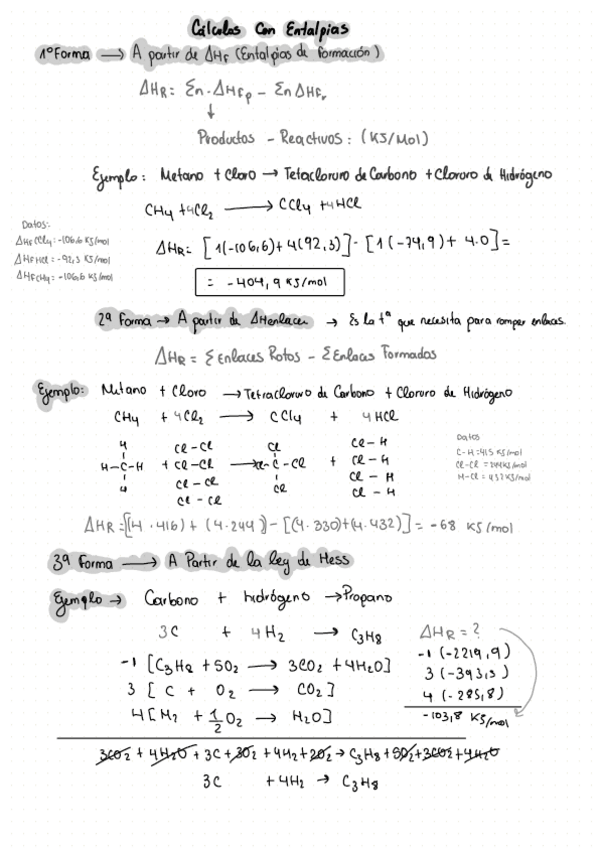 Cálculos Con Entalpías
1º Forma → A partir de ΔHf (Entalpías de formación)
ΔHR = Σn·ΔHfp − ΣnΔHfr
↓
Productos − Reactivos: (KJ/Mol)
Ejemplo: Metano + Cloro → Tetracloruro de Carbono + Cloruro de Hidrógeno
CH4 + 4Cl2 → CCl4 + 4HCl
Datos:
ΔHf CCl4 = -106,6 KJ/mol
ΔHf HCl = -92,3 KJ/mol
ΔHf CH4 = -106,6 KJ/mol
ΔHR = [1(-106,6) + 4(92,3)] - [1(-74,9) + 4·0] =
= -404,9 KJ/mol
2ª Forma → A partir de ΔHenlace → Es la tª que necesita para romper enlaces.
ΔHR = Σ Enlaces Rotos − Σ Enlaces Formados
Ejemplo: Metano + Cloro → Tetracloruro de Carbono + Cloruro de Hidrógeno
CH4 + 4Cl2 → CCl4 + 4HCl
H Cl-Cl Cl Cl-H
H-C-H + Cl-Cl → Cl-C-Cl + Cl-H
H Cl-Cl Cl Cl-H
Cl-Cl Cl-H
Datos
C-H = 415 KJ/mol
Cl-Cl = 244 KJ/mol
H-Cl = 432 KJ/mol
ΔHR = [(4·416) + (4·244)] − [(4·330) + (4·432)] = -68 KJ/mol
3ª Forma → A Partir de la ley de Hess
Ejemplo → Carbono + hidrógeno → Propano
3C + 4H2 → C3H8
ΔHR = ?
-1 [C3H8 + 5O2 → 3CO2 + 4H2O] -1 (-2219,9)
3 [C + O2 → CO2] 3 (-393,5)
4 [H2 + 1/2 O2 → H2O] 4 (-285,8)
-103,8 KJ/mol
3CO2 + 4H2O + 3C + 3O2 + 4H2 + 2O2 → C3H8 + 5O2 + 3CO2 + 4H2O
3C + 4H2 → C3H8